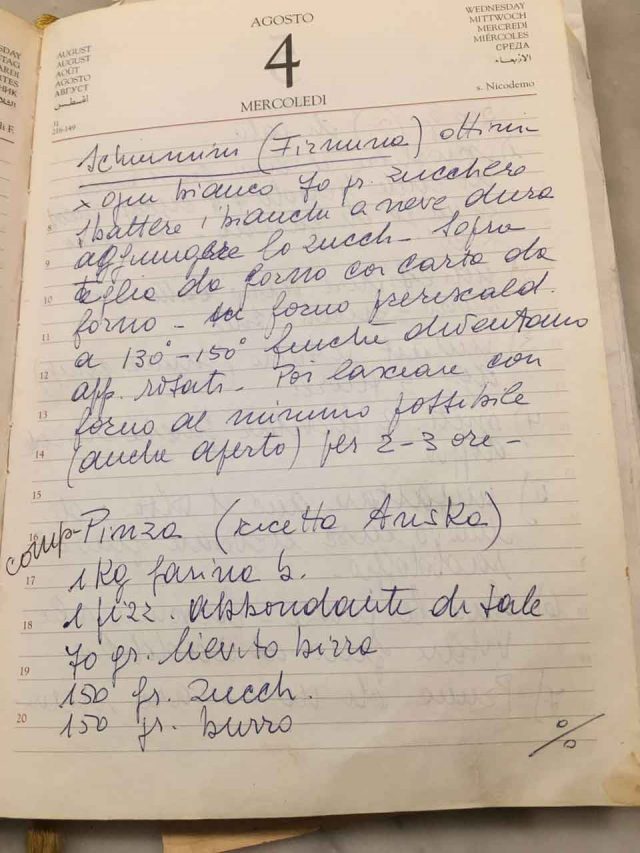 AGOSTO
4
MERCOLEDI
AUGUST
AUGUST
AOÛT
AGOSTO
АВГУСТ
أغسطس
WEDNESDAY
MITTWOCH
MERCREDI
MIÉRCOLES
СРЕДА
الأربعاء
s. Nicodemo
216-149
Schiumini (Firmina) ottimi-
x ogni bianco 70 gr. zucchero
sbattere i bianchi a neve dura
aggiungere lo zucch- Sopra
teglia da forno con carta da
forno - in forno preriscald.
a 130°-150° finchè diventano
app. rosati. Poi lasciare con
forno al minimo possibile
(anche aperto) per 2-3 ore-
comp-Pinza (ricetta Ariska)
1 Kg farina b.
1 pizz. abbondante di sale
70 gr. lievito birra
150 gr. zucch.
150 gr. burro
%
8
9
10
11
12
13
14
15
16
17
18
19
20